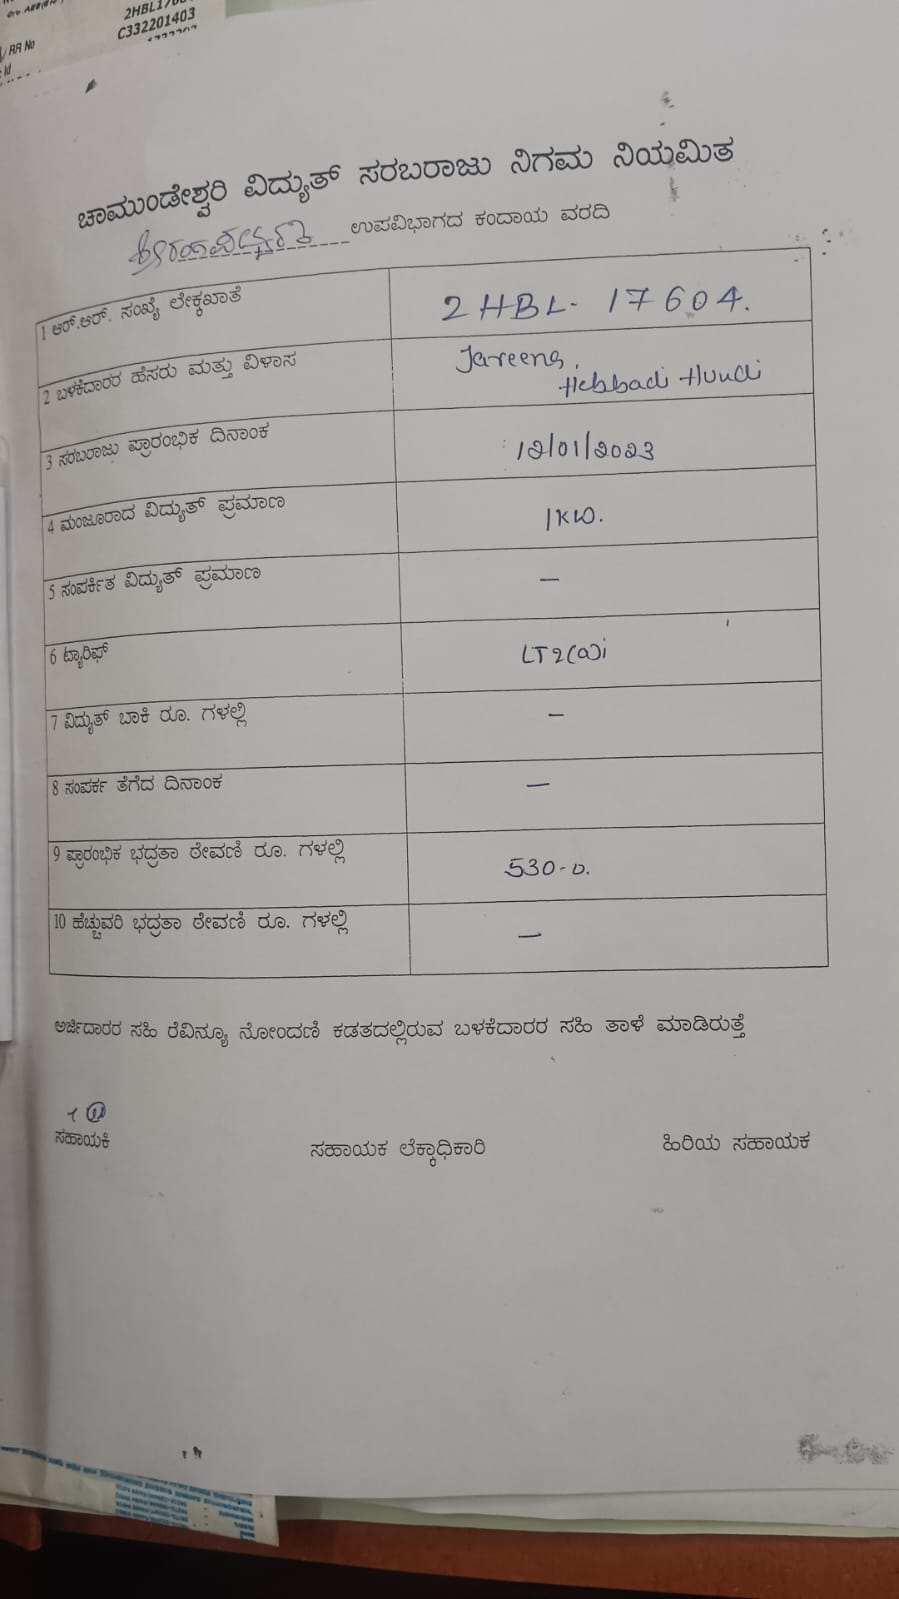 2HBL1760
C332201403
/ RR No
ಚಾಮುಂಡೇಶ್ವರಿ ವಿದ್ಯುತ್ ಸರಬರಾಜು ನಿಗಮ ನಿಯಮಿತ
ಉಪವಿಭಾಗದ ಕಂದಾಯ ವರದಿ
1 ಆರ್.ಆರ್. ಸಂಖ್ಯೆ ಲೇಕ್ಕಖಾತೆ 2 HBL- 17604.
2 ಬಳಕೆದಾರರ ಹೆಸರು ಮತ್ತು ವಿಳಾಸ Jareena,
Hebbadi Hundi
3 ಸರಬರಾಜು ಪ್ರಾರಂಭಿಕ ದಿನಾಂಕ 12/01/2023
4 ಮಂಜೂರಾದ ವಿದ್ಯುತ್ ಪ್ರಮಾಣ 1KW.
5 ಸಂಪರ್ಕಿತ ವಿದ್ಯುತ್ ಪ್ರಮಾಣ —
6 ಟ್ಯಾರಿಫ್ LT2(a)i
7 ವಿದ್ಯುತ್ ಬಾಕಿ ರೂ. ಗಳಲ್ಲಿ —
8 ಸಂಪರ್ಕ ತೆಗೆದ ದಿನಾಂಕ —
9 ಪ್ರಾರಂಭಿಕ ಭದ್ರತಾ ಠೇವಣಿ ರೂ. ಗಳಲ್ಲಿ 530-0.
10 ಹೆಚ್ಚುವರಿ ಭದ್ರತಾ ಠೇವಣಿ ರೂ. ಗಳಲ್ಲಿ —
ಅರ್ಜಿದಾರರ ಸಹಿ ರೆವಿನ್ಯೂ ನೋಂದಣಿ ಕಡತದಲ್ಲಿರುವ ಬಳಕೆದಾರರ ಸಹಿ ತಾಳೆ ಮಾಡಿರುತ್ತೆ
ಸಹಾಯಕಿ ಸಹಾಯಕ ಲೆಕ್ಕಾಧಿಕಾರಿ ಹಿರಿಯ ಸಹಾಯಕ